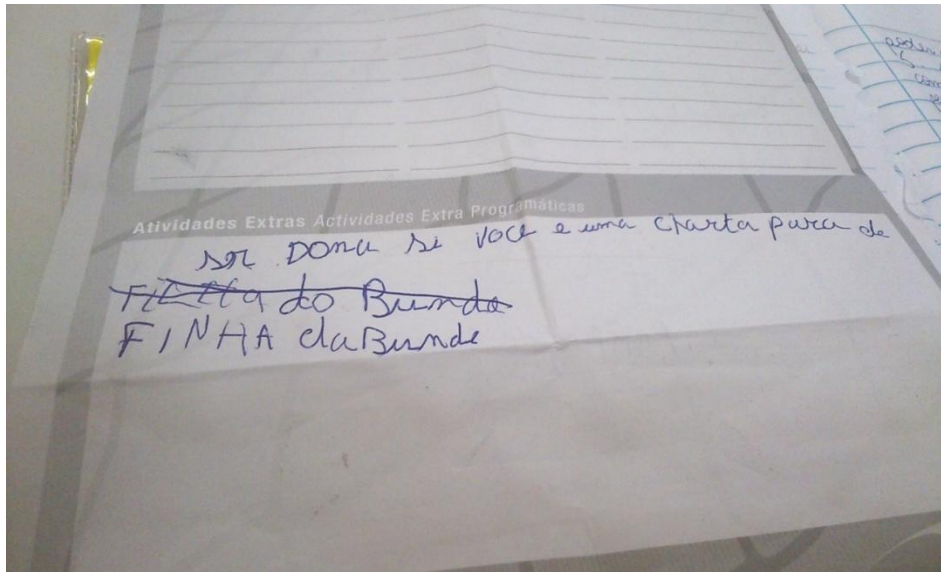 Atividades Extras Actividades Extra Programáticas
ser Dona si você e uma charta para de
do Bunda
FINHA da Bunde